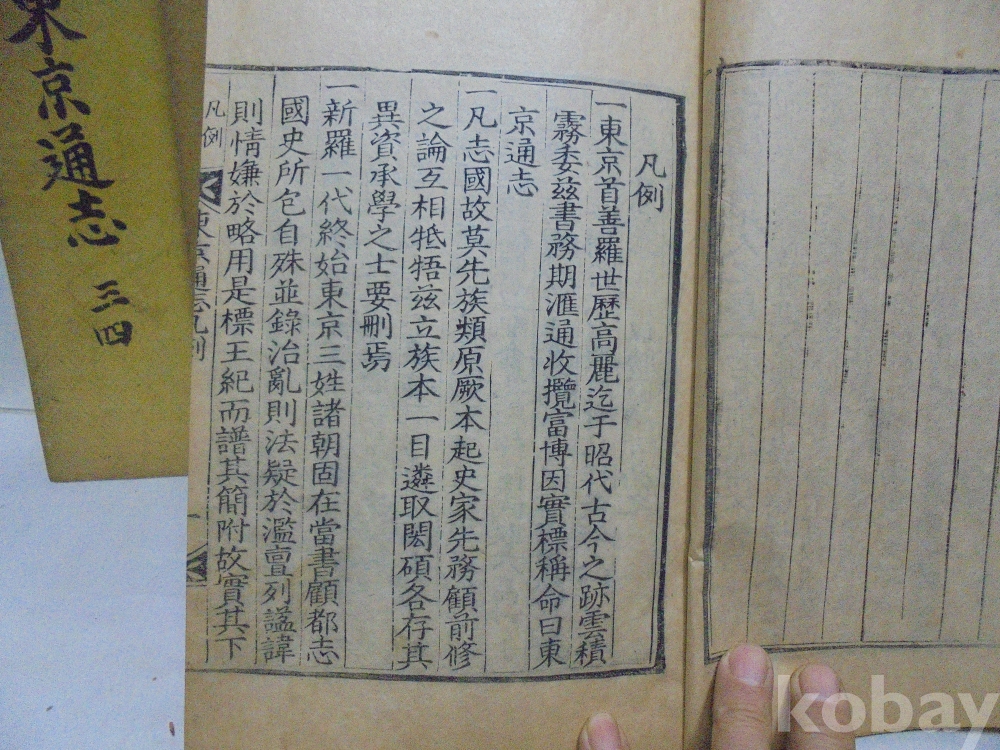 凡例
一東京首善羅世歷高麗迄于昭代古今之跡雲積
霧委茲書務期滙通收攬富博因實標稱命曰東
京通志
一凡志國故莫先族類原厥本起史家先務顧前修
之論互相牴牾茲立族本一目遴取閎碩各存其
異資承學之士要刪焉
一新羅一代終始東京三姓諸朝固在當書顧都志
國史所包自殊並錄治亂則法疑於濫亶列謚諱
則情嫌於略用是標王紀而譜其簡附故實其下
凡例
東京通志凡例
一
東京通志 三四
kobay